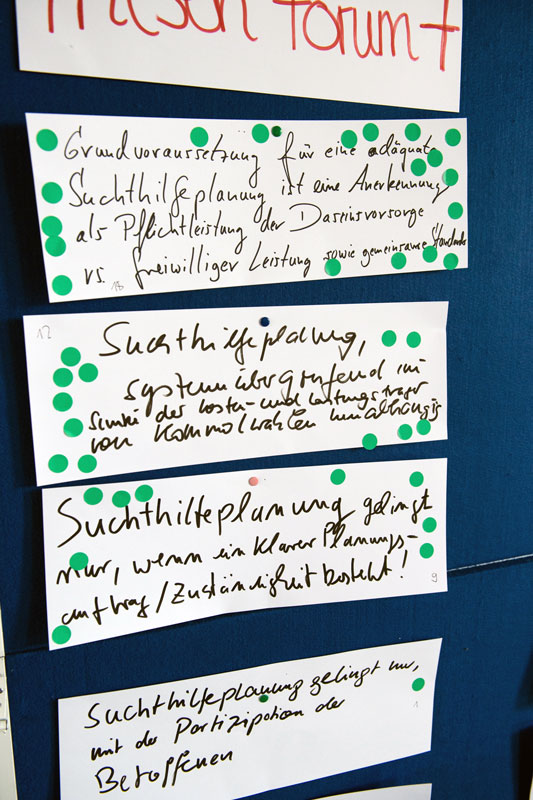 Forum 7
Grundvoraussetzung für eine adäquate
Suchthilfeplanung ist eine Anerkennung
als Pflichtleistung der Daseinsvorsorge
vs. freiwilliger Leistung sowie gemeinsame Standards
18
12
Suchthilfeplanung,
systemübergreifend im
Sinne der Kosten- und Leistungsträger
von Kommol wahlen unabhängig
Suchthilfeplanung gelingt
nur, wenn ein klarer Planungs-
auftrag/Zuständigkeit besteht!
9
Suchthilfeplanung gelingt nur,
1
mit der Partizipation der
Betroffenen